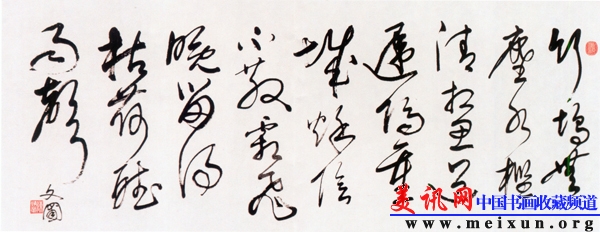 竹塢無
塵水檻
清相思迢
遞隔重
城秋陰
不散霜飛
晚留得
枯荷聽
雨聲
美讯网 中国书画收藏频道
www.meixun.org